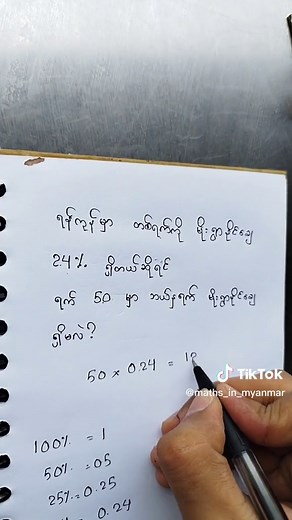 ရန်ကုန်မှာ တစ်ရက်ကို မိုးရွာနိုင်ချေ
24% ရှိတယ်ဆိုရင်
ရက် 50 မှာ ဘယ်နှရက် မိုးရွာနိုင်ချေ
ရှိမလဲ?
50 × 0.24 = 12
TikTok
@maths_in_myanmar
100% = 1
50% = 05
25% = 0.25
= 0.24